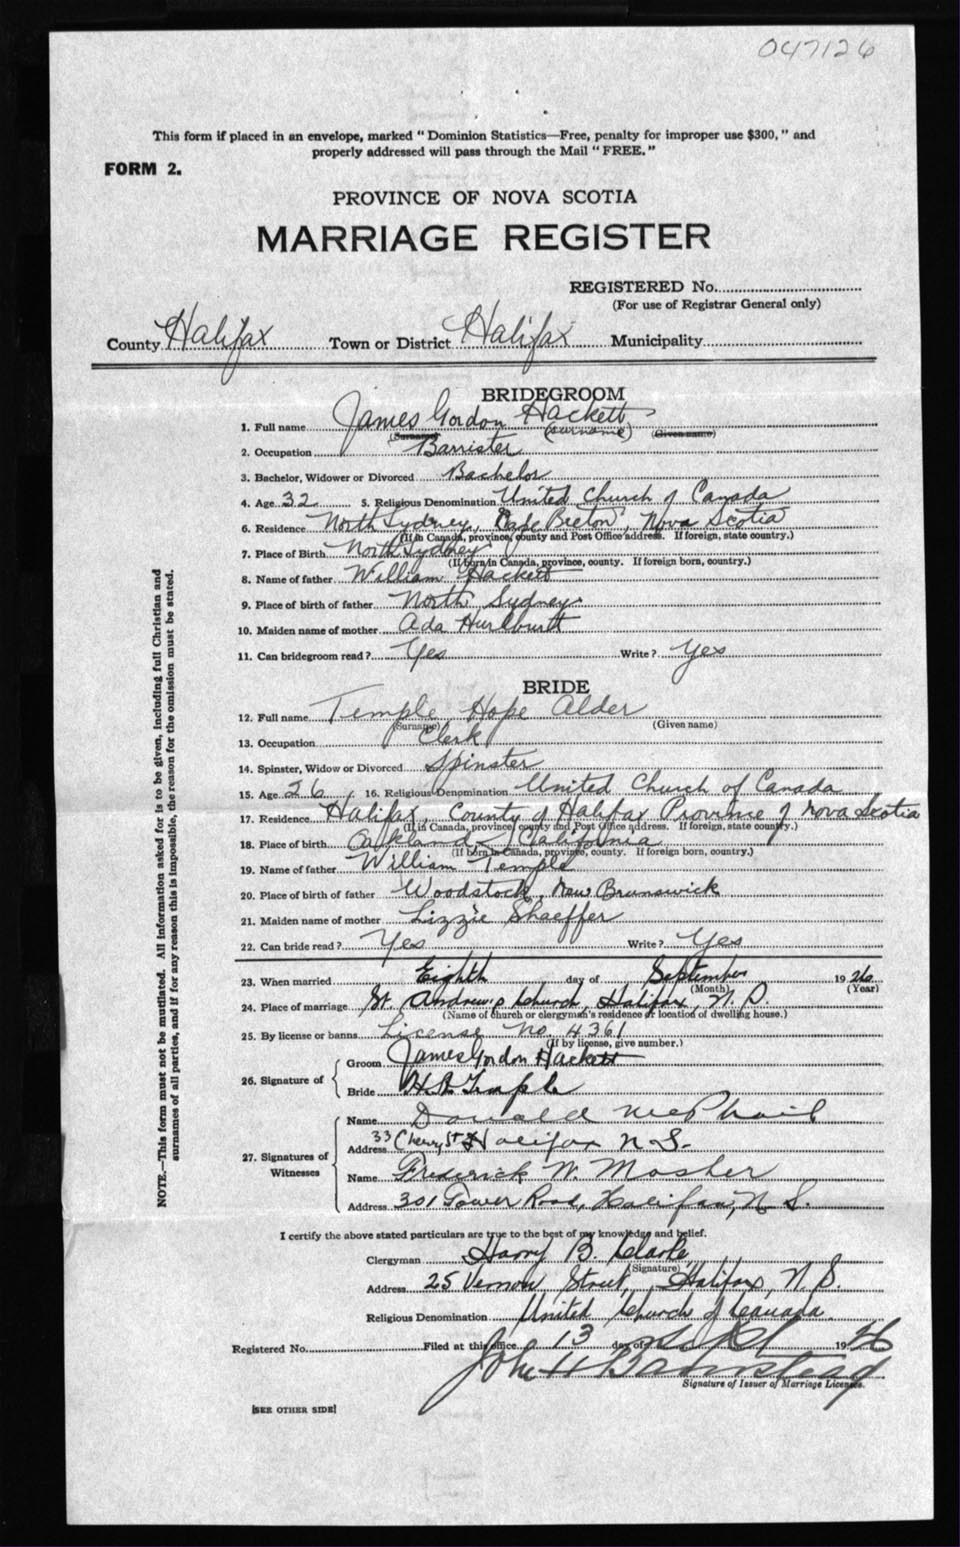 047126
This form if placed in an envelope, marked " Dominion Statistics—Free, penalty for improper use $300, " and
properly addressed will pass through the Mail " FREE. "
FORM 2.
PROVINCE OF NOVA SCOTIA
MARRIAGE REGISTER
REGISTERED No.
(For use of Registrar General only)
County Halifax Town or District Halifax Municipality
BRIDEGROOM
1. Full name James Gordon Hackett
(Surname) (surname) (Given name)
2. Occupation Barrister
3. Bachelor, Widower or Divorced Bachelor
4. Age 32 5. Religious Denomination United Church of Canada
6. Residence North Sydney, Cape Breton, Nova Scotia
(If in Canada, province, county and Post Office address. If foreign, state country.)
7. Place of Birth North Sydney
(If born in Canada, province, county. If foreign born, country.)
8. Name of father William Hackett
9. Place of birth of father North Sydney
10. Maiden name of mother Ada Hurlburtt
11. Can bridegroom read? Yes Write? Yes
BRIDE
12. Full name Temple Hope Alder
(Surname) (Given name)
13. Occupation Clerk
14. Spinster, Widow or Divorced Spinster
15. Age 26 16. Religious Denomination United Church of Canada
17. Residence Halifax, County of Halifax Province of Nova Scotia
(If in Canada, province, county and Post Office address. If foreign, state country.)
18. Place of birth Oakland, California
(If born in Canada, province, county. If foreign born, country.)
19. Name of father William Temple
20. Place of birth of father Woodstock, New Brunswick
21. Maiden name of mother Lizzie Shaeffer
22. Can bride read? Yes Write? Yes
23. When married Eighth day of September 1926
(Month) (Year)
24. Place of marriage St. Andrew's Church, Halifax, N.S.
(Name of church or clergyman's residence or location of dwelling house.)
25. By license or banns License No. 4361
(If by license, give number.)
26. Signature of Groom James Gordon Hackett
Bride H.A. Temple
27. Signatures of Witnesses
Name Donald McPhail
Address 33 Cherry St Halifax N.S.
Name Frederick W. Mosher
Address 301 Tower Road, Halifax, N.S.
I certify the above stated particulars are true to the best of my knowledge and belief.
Clergyman Harry B. Clarke
(Signature)
Address 25 Vernon Street, Halifax, N.S.
Religious Denomination United Church of Canada
Registered No. Filed at this office 13 day of Sept 1926
John H Barnstead
Signature of Issuer of Marriage Licenses.
[SEE OTHER SIDE]
NOTE.—This form must not be mutilated. All information asked for is to be given, including full Christian and
surnames of all parties, and if for any reason this is impossible, the reason for the omission must be stated.